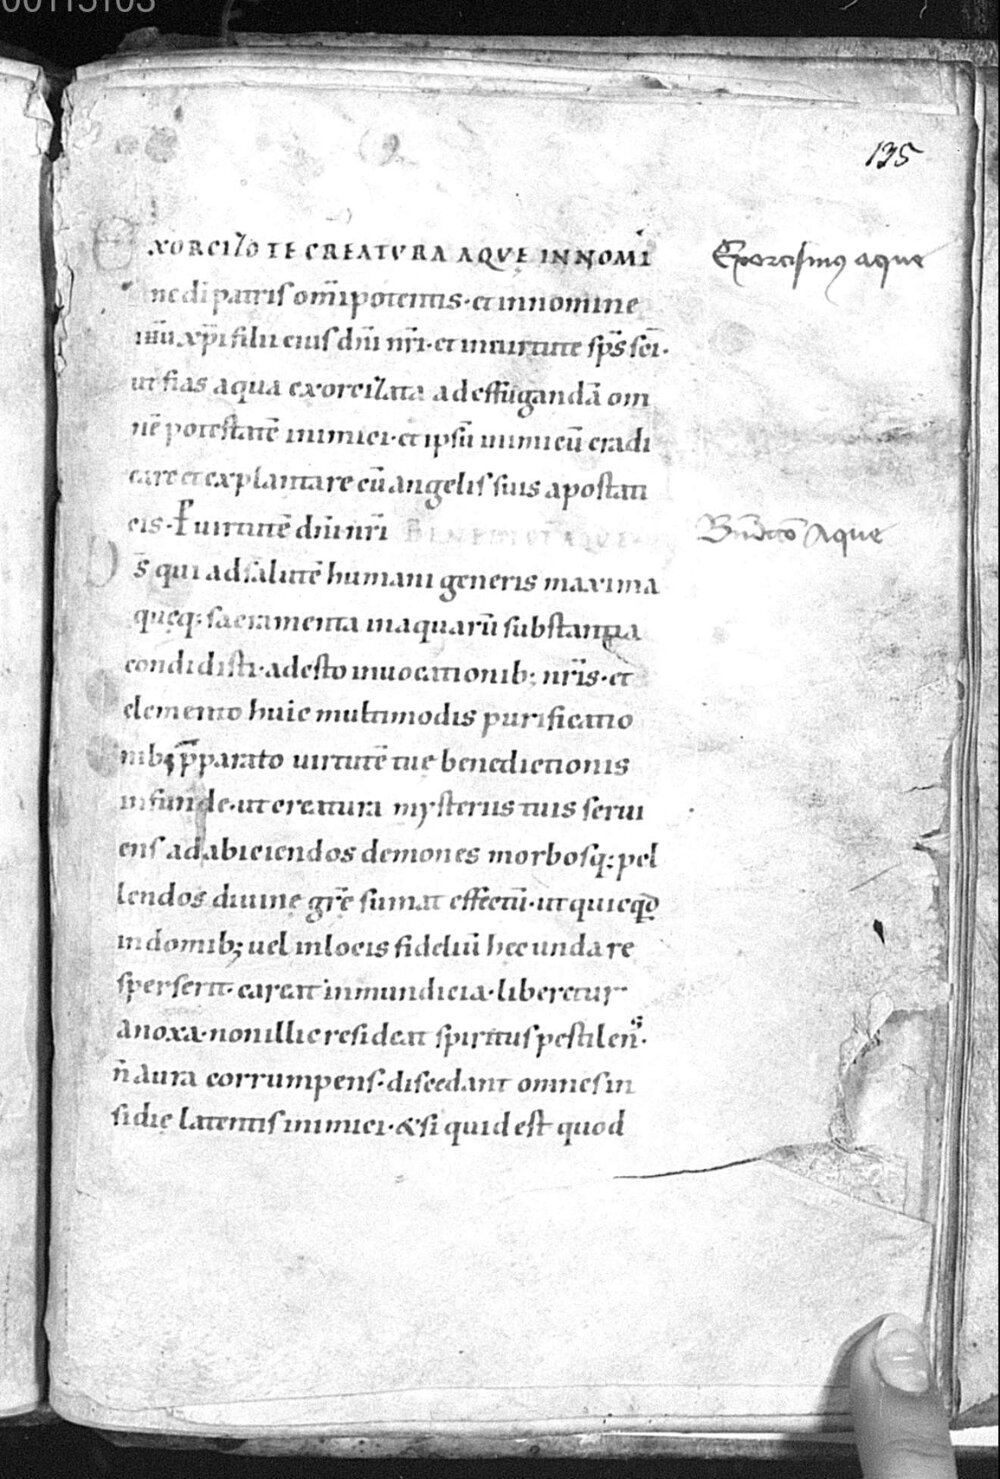 00115103
135
EXORCIZO TE CREATVRA AQVE IN NOMI
Exorcismus aque
ne di patris om̅ipotentis· et in nomine
ih̅u xp̅i filii eius dn̅i nr̅i· et in uirtute sp̅s sc̅i·
ut fias aqua exorcizata ad effugandā om
nē potestatē inimici· et ipsū inimicū eradi
care et explantare cū angelis suis apostati
cis· P̲ uirtutē dn̅i nr̅i BENEDICTIO AQVE
Bn̅dictō Aque
D s̅ qui ad salutē humani generis maxima
quęq; sacramenta in aquarū substantia
condidisti· adesto inuocationib; nr̅is· et
elemento huic multimodis purificatio
nib; p̅parato uirtutē tuę benedictionis
infunde· ut creatura mysteriis tuis serui
ens ad abiciendos demones morbosq; pel
lendos diuinę gr̅e sumat effectū· ut quicqd̲
in domib; uel in locis fideliū hec unda re
sperserit· careat inmundicia· liberetur
a noxa· non illic resideat spiritus pestilens̅·
n̅ aura corrumpens· discedant omnes in
sidię latentis inimici· & si quid est quod